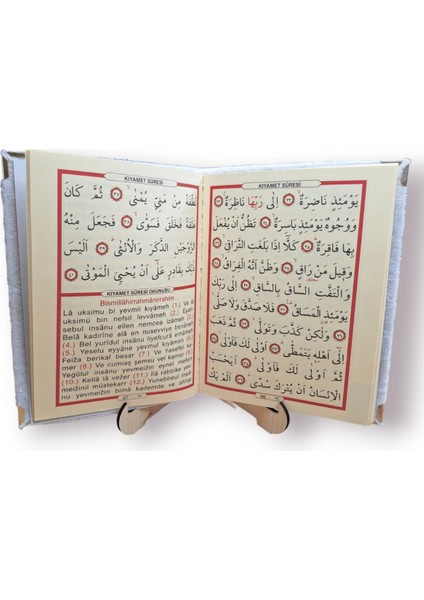 KIYAMET SÛRESİ
يَوْمَئِذٍ نَاضِرَةٌ ﴿٢٢﴾ اِلٰى رَبِّهَا نَاظِرَةٌ ﴿٢٣﴾
وَوُجُوهٌ يَوْمَئِذٍ بَاسِرَةٌ ﴿٢٤﴾ تَظُنُّ اَنْ يُفْعَلَ
بِهَا فَاقِرَةٌ ﴿٢٥﴾ كَلَّا اِذَا بَلَغَتِ التَّرَاقِيَ ﴿٢٦﴾
وَقِيلَ مَنْ رَاقٍ ﴿٢٧﴾ وَظَنَّ اَنَّهُ الْفِرَاقُ ﴿٢٨﴾
وَالْتَفَّتِ السَّاقُ بِالسَّاقِ ﴿٢٩﴾ اِلٰى رَبِّكَ
يَوْمَئِذٍ الْمَسَاقُ ﴿٣٠﴾ فَلَا صَدَّقَ وَلَا صَلّٰى ﴿٣١﴾
وَلٰكِنْ كَذَّبَ وَتَوَلّٰى ﴿٣٢﴾ ثُمَّ ذَهَبَ
اِلٰى اَهْلِهِ يَتَمَطّٰى ﴿٣٣﴾ اَوْلٰى لَكَ فَاَوْلٰى ﴿٣٤﴾
ثُمَّ اَوْلٰى لَكَ فَاَوْلٰى ﴿٣٥﴾ اَيَحْسَبُ
الْاِنْسَانُ اَنْ يُتْرَكَ سُدًى ﴿٣٦﴾ اَلَمْ يَكُ
KIYAMET SÛRESİ
نُطْفَةً مِنْ مَنِيٍّ يُمْنٰى ﴿٣٧﴾ ثُمَّ كَانَ
عَلَقَةً فَخَلَقَ فَسَوّٰى ﴿٣٨﴾ فَجَعَلَ مِنْهُ
الزَّوْجَيْنِ الذَّكَرَ وَالْاُنْثٰى ﴿٣٩﴾ اَلَيْسَ
ذٰلِكَ بِقَادِرٍ عَلٰٓى اَنْ يُحْيِيَ الْمَوْتٰى ﴿٤٠﴾
KIYAMET SÛRESİ OKUNUŞU
Bismillâhirrahmânirrahîm
Lâ uksimu bi yevmil kıyâmeh (1.) Ve lâ
uksimü bin nefsil levvâmeh (2.) Eyah-
sebul insânu ellen necmea izâmeh (3.)
Belâ kadirîne alâ en nusevviye benâneh
(4.) Bel yurîdul insânu liyefcurâ emâmeh
(5.) Yeselu eyyâne yevmul kıyâmeh (6.)
Feiza berikal besar (7.) Ve hasefel ka-
mer (8.) Ve cumiaş şemsu vel kamer (9.)
Yegûlul insânu yevmeizin eynel mefer
(10.) Kellâ lâ vezer (11.) İlâ rabbike yev-
meizinil müstekarr (12.) Yunebbeul insâ-
nu yevmeizin bimâ kaddeme ve ahhar